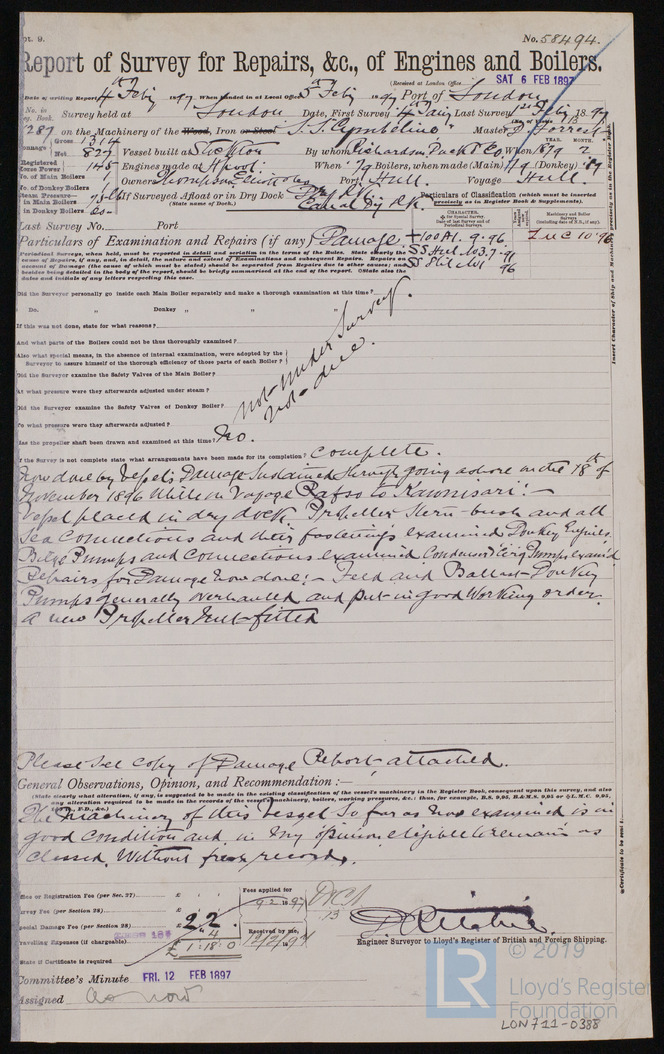 Rpt. 9.
No. 58494.
Report of Survey for Repairs, &c., of Engines and Boilers.
(Received at London Office
SAT 6 FEB 1897
Date of writing Report 4th Feby 1897 When handed in at Local Office 5th Feby 1897 Port of London
No. in Reg. Book. Survey held at London Date, First Survey 4th Jany Last Survey 1st Feby 1897
287 on the Machinery of the Wood, Iron or Steel S.S. "Cymbeline" Master D. Forrest
Tonnage Gross 1314
Net 827 Vessel built at Stockton By whom Richardson Duck & Co. When 1879 2
Registered Horse Power 145 Engines made at Hpool When 79 Boilers, when made (Main) 79 (Donkey) 89
No. of Main Boilers 1 Owners Thompson Port Hull Voyage Hull
No. of Donkey Boilers 1
Steam Pressure in Main Boilers 75 lb If Surveyed Afloat or in Dry Dock Dry Dk
in Donkey Boilers (State name of Dock.)
Particulars of Classification (which must be inserted precisely as in Register Book & Supplements).
Last Survey No. Port
Particulars of Examination and Repairs (if any) Damage
+100A1. 9.96
SS Hull No3. 7.91
LMC 10.96
Did the Surveyor personally go inside each Main Boiler separately and make a thorough examination at this time?
Do. " Donkey " " "
If this was not done, state for what reasons?
And what parts of the Boilers could not be thus thoroughly examined?
Also what special means, in the absence of internal examination, were adopted by the Surveyor to assure himself of the thorough efficiency of those parts of each Boiler?
Did the Surveyor examine the Safety Valves of the Main Boiler?
At what pressure were they afterwards adjusted under steam?
Did the Surveyor examine the Safety Valves of Donkey Boiler?
To what pressure were they afterwards adjusted?
Not under Survey.
Not due.
Has the propeller shaft been drawn and examined at this time? No.
If the Survey is not complete state what arrangements have been made for its completion? Complete.
Now due by Vessels Damage Sustained through going ashore on the 18th of
November 1896 While on Voyage Rafso to Kawnisari:-
Vessel placed in dry dock. Propeller Stern-bush and all
Sea Connections and their fastenings examined Donkey Engines.
Bilge Pumps and Connections examined. Condenser & Circg Pumps examd
Repairs for Damage now done:- Feed and Ballast Donkey
Pumps generally overhauled and put in good Working order.
A new Propeller nut fitted
Please see copy of Damage Report attached.
General Observations, Opinion, and Recommendation:—
The Machinery of this Vessel so far as now examined is in
good condition and in my opinion eligible to remain as
classed. Without fresh record.
Office or Registration Fee (per Sec. 27) £
Survey Fee (per Section 28) £
Special Damage Fee (per Section 28) £ 2.2
Travelling Expenses (if chargeable) £ 4
£ 1:18:0
Fees applied for
9.2.1897
Received by me,
12/2/97
State if Certificate is required
Engineer Surveyor to Lloyd's Register of British and Foreign Shipping.
Committee's Minute FRI. 12 FEB 1897
Assigned as now
Insert Character of Ship and Machinery precisely as in the Register Book
Certificate to be sent to
© 2019
LR
Lloyd's Register
Foundation
LON711-0388